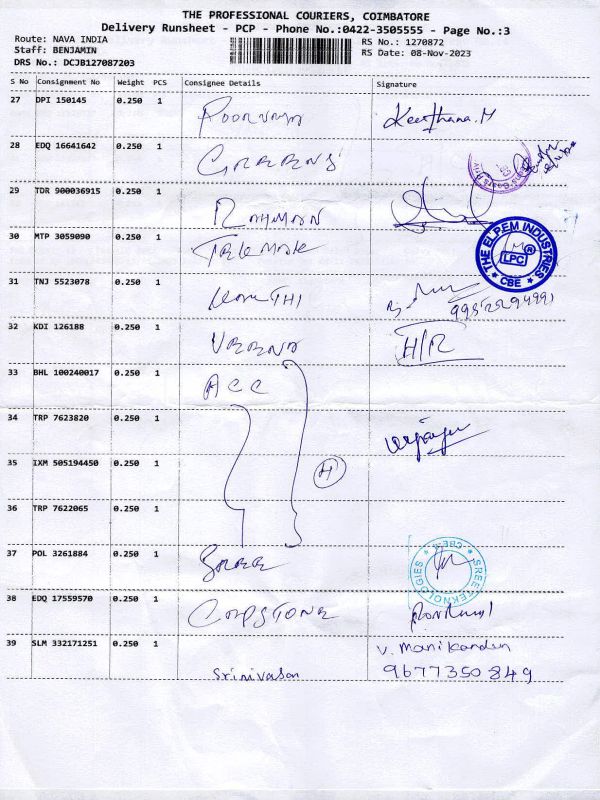 THE PROFESSIONAL COURIERS, COIMBATORE
Delivery Runsheet - PCP - Phone No.:0422-3505555 - Page No.:3
Route: NAVA INDIA
Staff: BENJAMIN
DRS No.: DCJB127087203
RS No.: 1270872
RS Date: 08-Nov-2023
S No Consignment No Weight PCS Consignee Details Signature
27 DPI 150145 0.250 1 Keerthana.M
28 EDQ 16641642 0.250 1
29 TDR 900036915 0.250 1 RAHMAN
30 MTP 3059090 0.250 1 THE ELPEM INDUSTRIES LPC ® CBE
31 TNJ 5523078 0.250 1
32 KDI 126188 0.250 1 H/R
33 BHL 100240017 0.250 1 ACC
34 TRP 7623820 0.250 1
35 IXM 505194450 0.250 1 H
36 TRP 7622065 0.250 1
37 POL 3261884 0.250 1 SREE TEKNOLOGIES
38 EDQ 17559570 0.250 1 CAPSTONE
39 SLM 332171251 0.250 1 Srinivasan V. Manikandan
9677350849